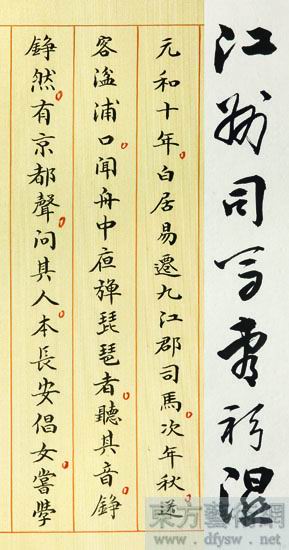 江州司馬青衫湿
元和十年白居易遷九江郡司馬次年秋送
客湓浦口聞舟中夜彈琵琶者聽其音錚
錚然有京都聲問其人本長安倡女嘗學
東方藝術網
www.dfysw.net